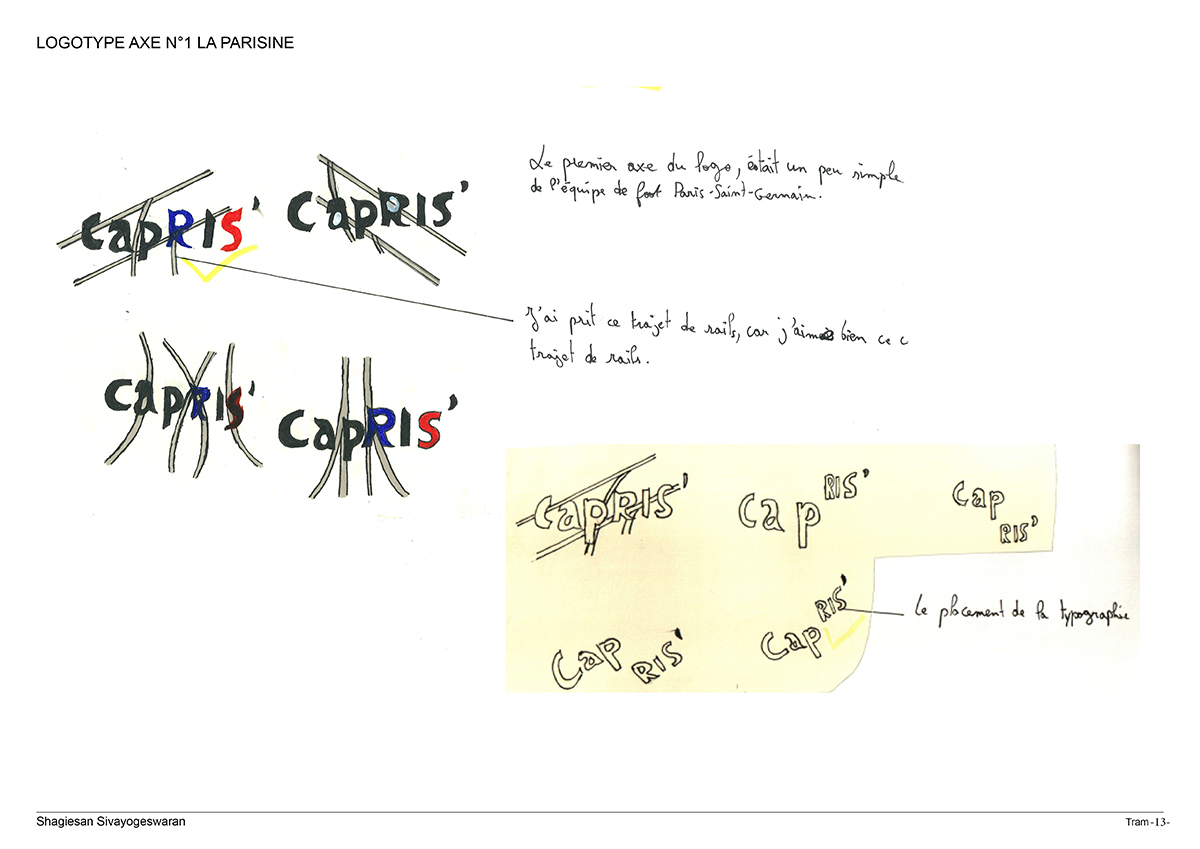 LOGOTYPE AXE N°1 LA PARISINE
Le premier axe du logo, était un peu simple
de l'équipe de foot Paris-Saint-Germain.
CapRIS'
CapRIS'
J'ai prit ce trajet de rails, car j'aime bien ce c
trajet de rails.
CapRIS'
CapRIS'
CapRIS'
Cap RIS'
Cap
RIS'
Cap RIS'
Cap RIS'
Le placement de la typographie
Shagiesan Sivayogeswaran
Tram -13-